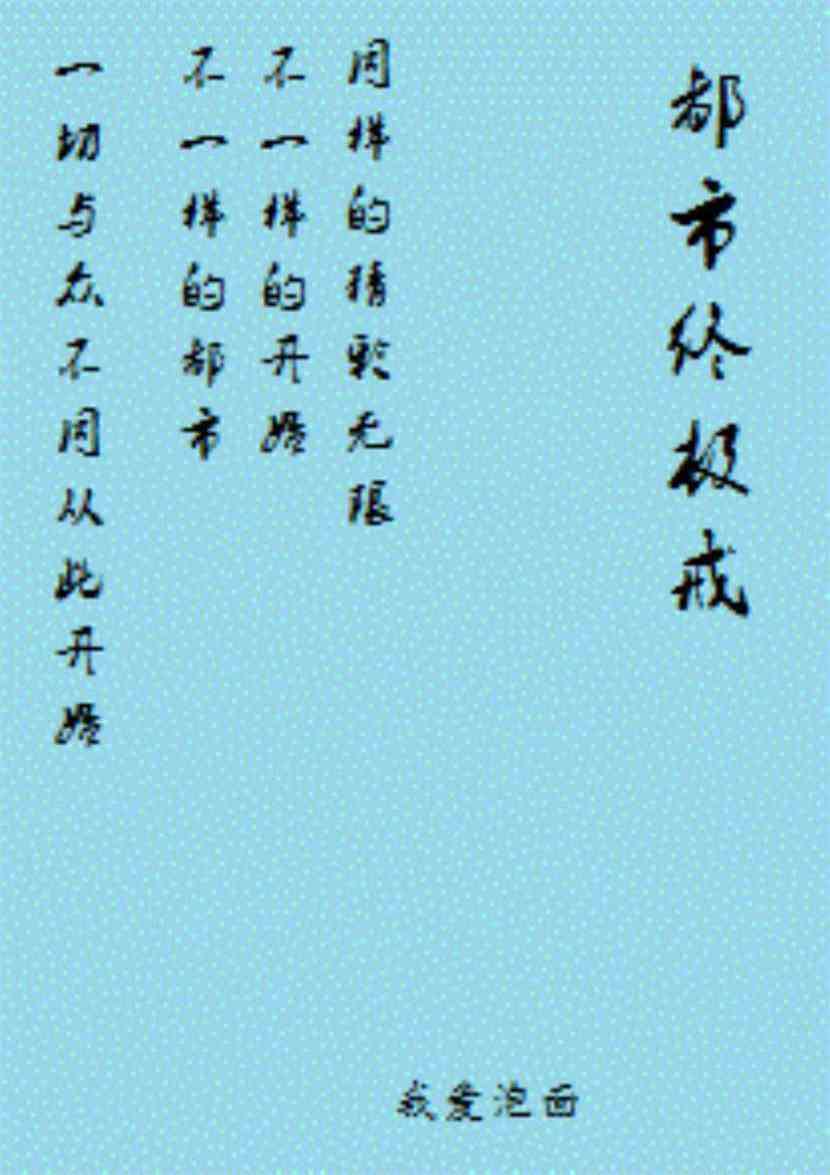 都市终极戒
同样的精彩无限
不一样的开始
不一样的都市
一切与众不同从此开始
我爱泡面